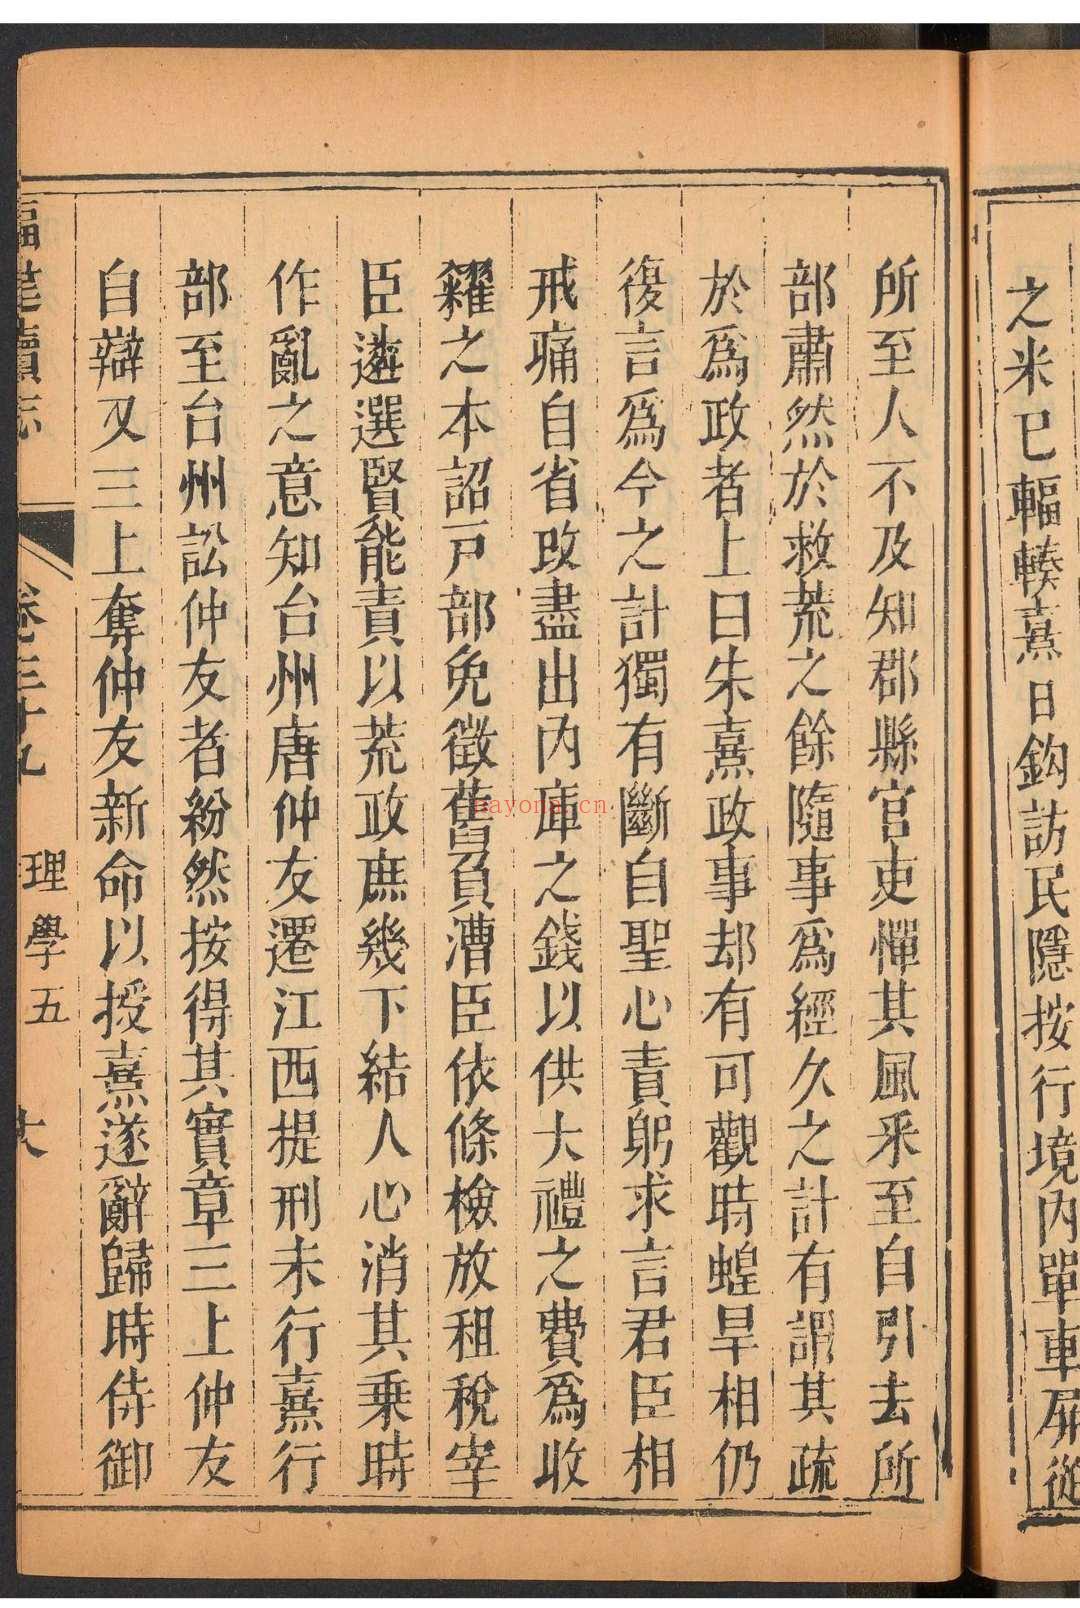 之米已輻輳熹日鈎訪民隱按行境內單車屏從
所至人不及知郡縣官吏憚其風采至自引去所
部肅然於救荒之餘隨事爲經久之計有謂其疏
於爲政者上曰朱熹政事却有可觀時蝗旱相仍
復言爲今之計獨有斷自聖心責躬求言君臣相
戒痛自省改盡出內庫之錢以供大禮之費爲收
糴之本詔戶部免徵舊負漕臣依條檢放租稅宰
臣遴選賢能責以荒政庶幾下結人心消其乗時
作亂之意知台州唐仲友遷江西提刑未行熹行
部至台州訟仲友者紛然按得其實章三上仲友
自辯又三上奪仲友新命以授熹遂辭歸時侍御
續志 卷三十九 理學五
nayona.cn